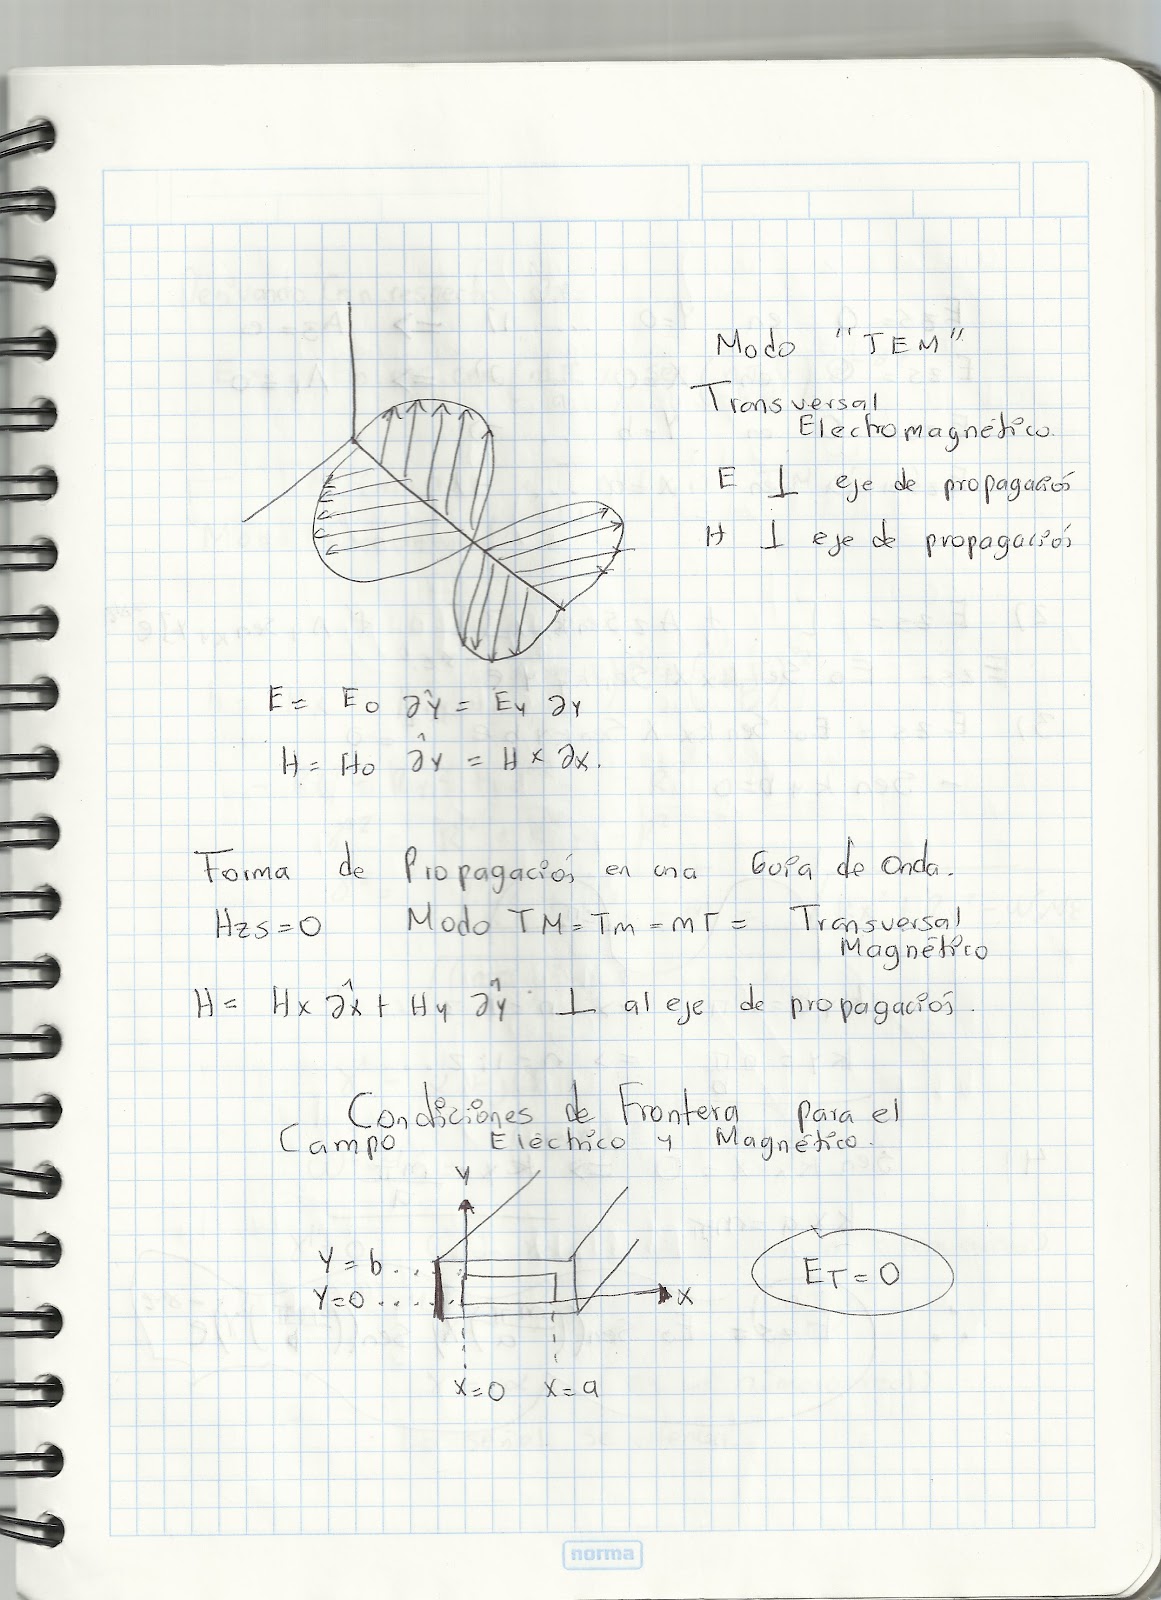 Modo "TEM"
Transversal
Electromagnético.
E ⊥ eje de propagació
H ⊥ eje de propagació
E = E0 ây = Ey ây
H = H0 ây = Hx âx.
Forma de Propagació en una Guia de Onda.
Hzs = 0 Modo TM = Tm = mT = Transversal
Magnético
H = Hx âx + Hy ây ⊥ al eje de propagació.
Condiciones de Frontera para el
Campo Eléctrico y Magnético.
Y
Y = b
Y = 0
X
ET = 0
X = 0 X = a
norma